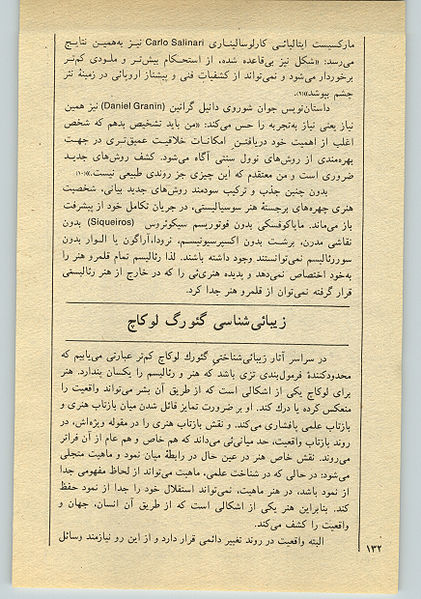 مارکسیست ایتالیائی کارلوسالیناری Carlo Salinari نیز به‌همین نتایج
می‌رسد: «شکل نیز بی‌قاعده شده، از استحکام بیش‌تر و ملودی کم‌تر
برخوردار می‌شود و نمی‌تواند از کشفیات فنی و پیشتاز اروپائی در زمینهٔ نثر
چشم بپوشد»(۹).
داستان‌نویس جوان شوروی دانیل گرانین (Daniel Granin) نیز همین
نیاز یعنی نیاز به‌تجربه را حس می‌کند: «من باید تشخیص بدهم که شخص
اغلب از اهمیت خود دریافتن امکانات خلاقیت عمیق‌تری در جهت
بهره‌مندی از روش‌های نوول سنتی آگاه می‌شود. کشف روش‌های جدید
ضروری است و من معتقدم که این چیزی جز روندی طبیعی نیست.»(۱۰)
بدون چنین جذب و ترکیب سودمند روش‌های جدید بیانی، شخصیت
هنری چهره‌های برجستهٔ هنر سوسیالیستی، در جریان تکامل خود از پیشرفت
باز می‌ماند. مایاکوفسکی بدون فوتوریسم سیکوئروس (Siqueiros) بدون
نقاشی مدرن، برشت بدون اکسپرسیونیسم، نرودا،آراگون یا الوار بدون
سوررئالیسم نمی‌توانستند وجود داشته باشند. لذا رئالیسم تمام قلمرو هنر را
به‌خود اختصاص نمی‌دهد و پدیده هنری‌ئی را که در خارج از هنر رئالیستی
قرار گرفته نمی‌توان از قلمرو هنر جدا کرد.
زیبائی‌شناسی گئورگ لوکاچ
در سراسر آثار زیبائی‌شناختی گئورك لوکاچ کم‌تر عبارتی می‌یابیم که
محدودکنندهٔ فرمول‌بندی تزی باشد که هنر و رئالیسم را یکسان پندارد. هنر
برای لوکاچ یکی از اشکالی است که از طریق آن بشر می‌تواند واقعیت را
منعکس کرده یا درك کند. او بر ضرورت تمایز قائل شدن میان بازتاب هنری و
بازتاب علمی پافشاری می‌کند. و نقش بازتاب هنری را در مقوله ویژه‌اش، در
روند بازتاب واقعیت، حد میانی‌ئی می‌داند که هم خاص و هم عام از آن فراتر
می‌روند. نقش خاص هنر در عین حال در رابطهٔ میان نمود و ماهیت متجلی
می‌شود: در حالی که در شناخت علمی، ماهیت می‌تواند از لحاظ مفهومی جدا
از نمود باشد، در هنر ماهیت، نمی‌تواند استقلال خود را جدا از نمود حفظ
کند. بنابراین هنر یکی از اشکالی است که از طریق آن انسان، جهان و
واقعیت را کشف می‌کند.
البته واقعیت در روند تغییر دائمی قرار دارد و از این رو نیازمند وسائل
۱۳۲